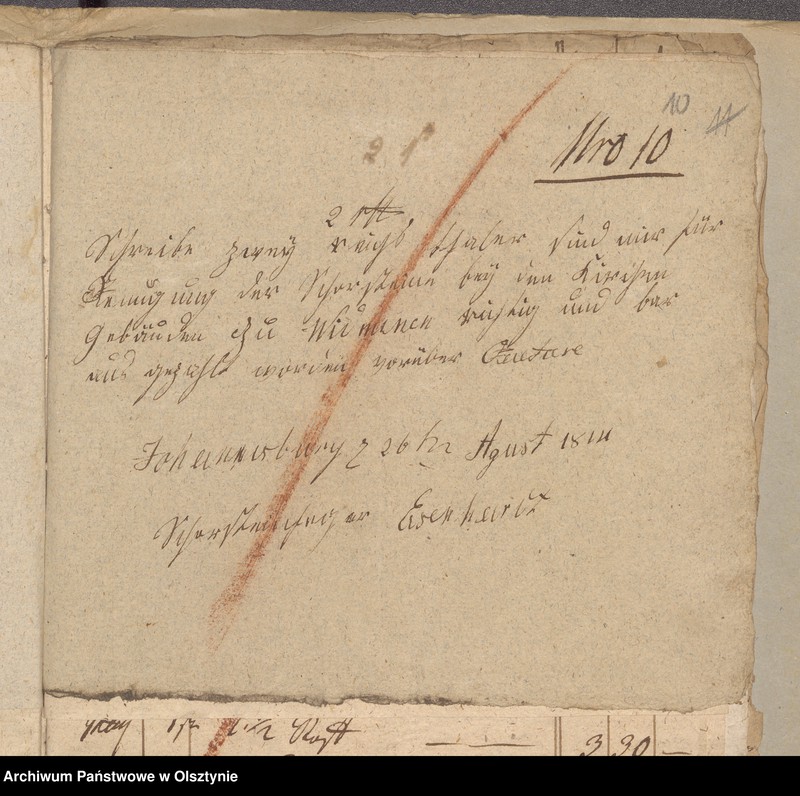 10
11
Nro 10
2 f
2 rtt.
Schreibe zwey reichs thaler sind mir für
Reinigung der Schorsteine bey den Kirchen
Gebäuden zu richtig und bar
aus gezahlt worden, worüber Quitire
Johannisburg d 26 ten Agust 181
Schorsteinfeger Eisenhardt
May 1 1/2
3 30 —
Archiwum Państwowe w Olsztynie